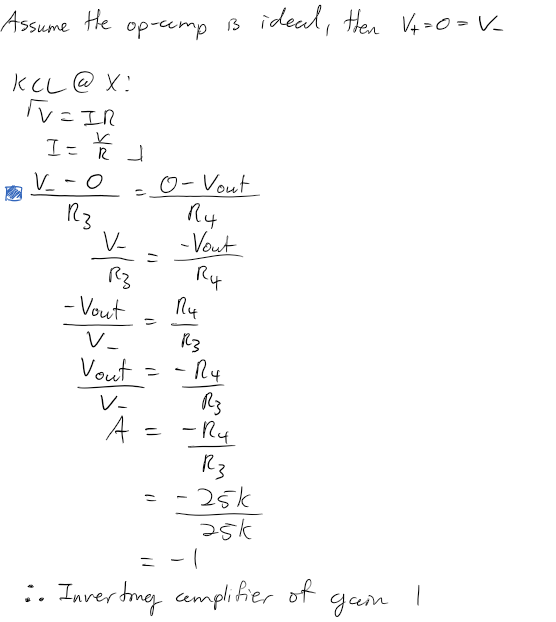 Assume the op-amp is ideal, then V+ = 0 = V-
KCL @ X:
⌈V = IR
I = V/R ⌋
(V- - 0)/R3 = (0 - Vout)/R4
V-/R3 = -Vout/R4
-Vout/V- = R4/R3
Vout/V- = -R4/R3
A = -R4/R3
= -25k/25k
= -1
∴ Inverting amplifier of gain 1